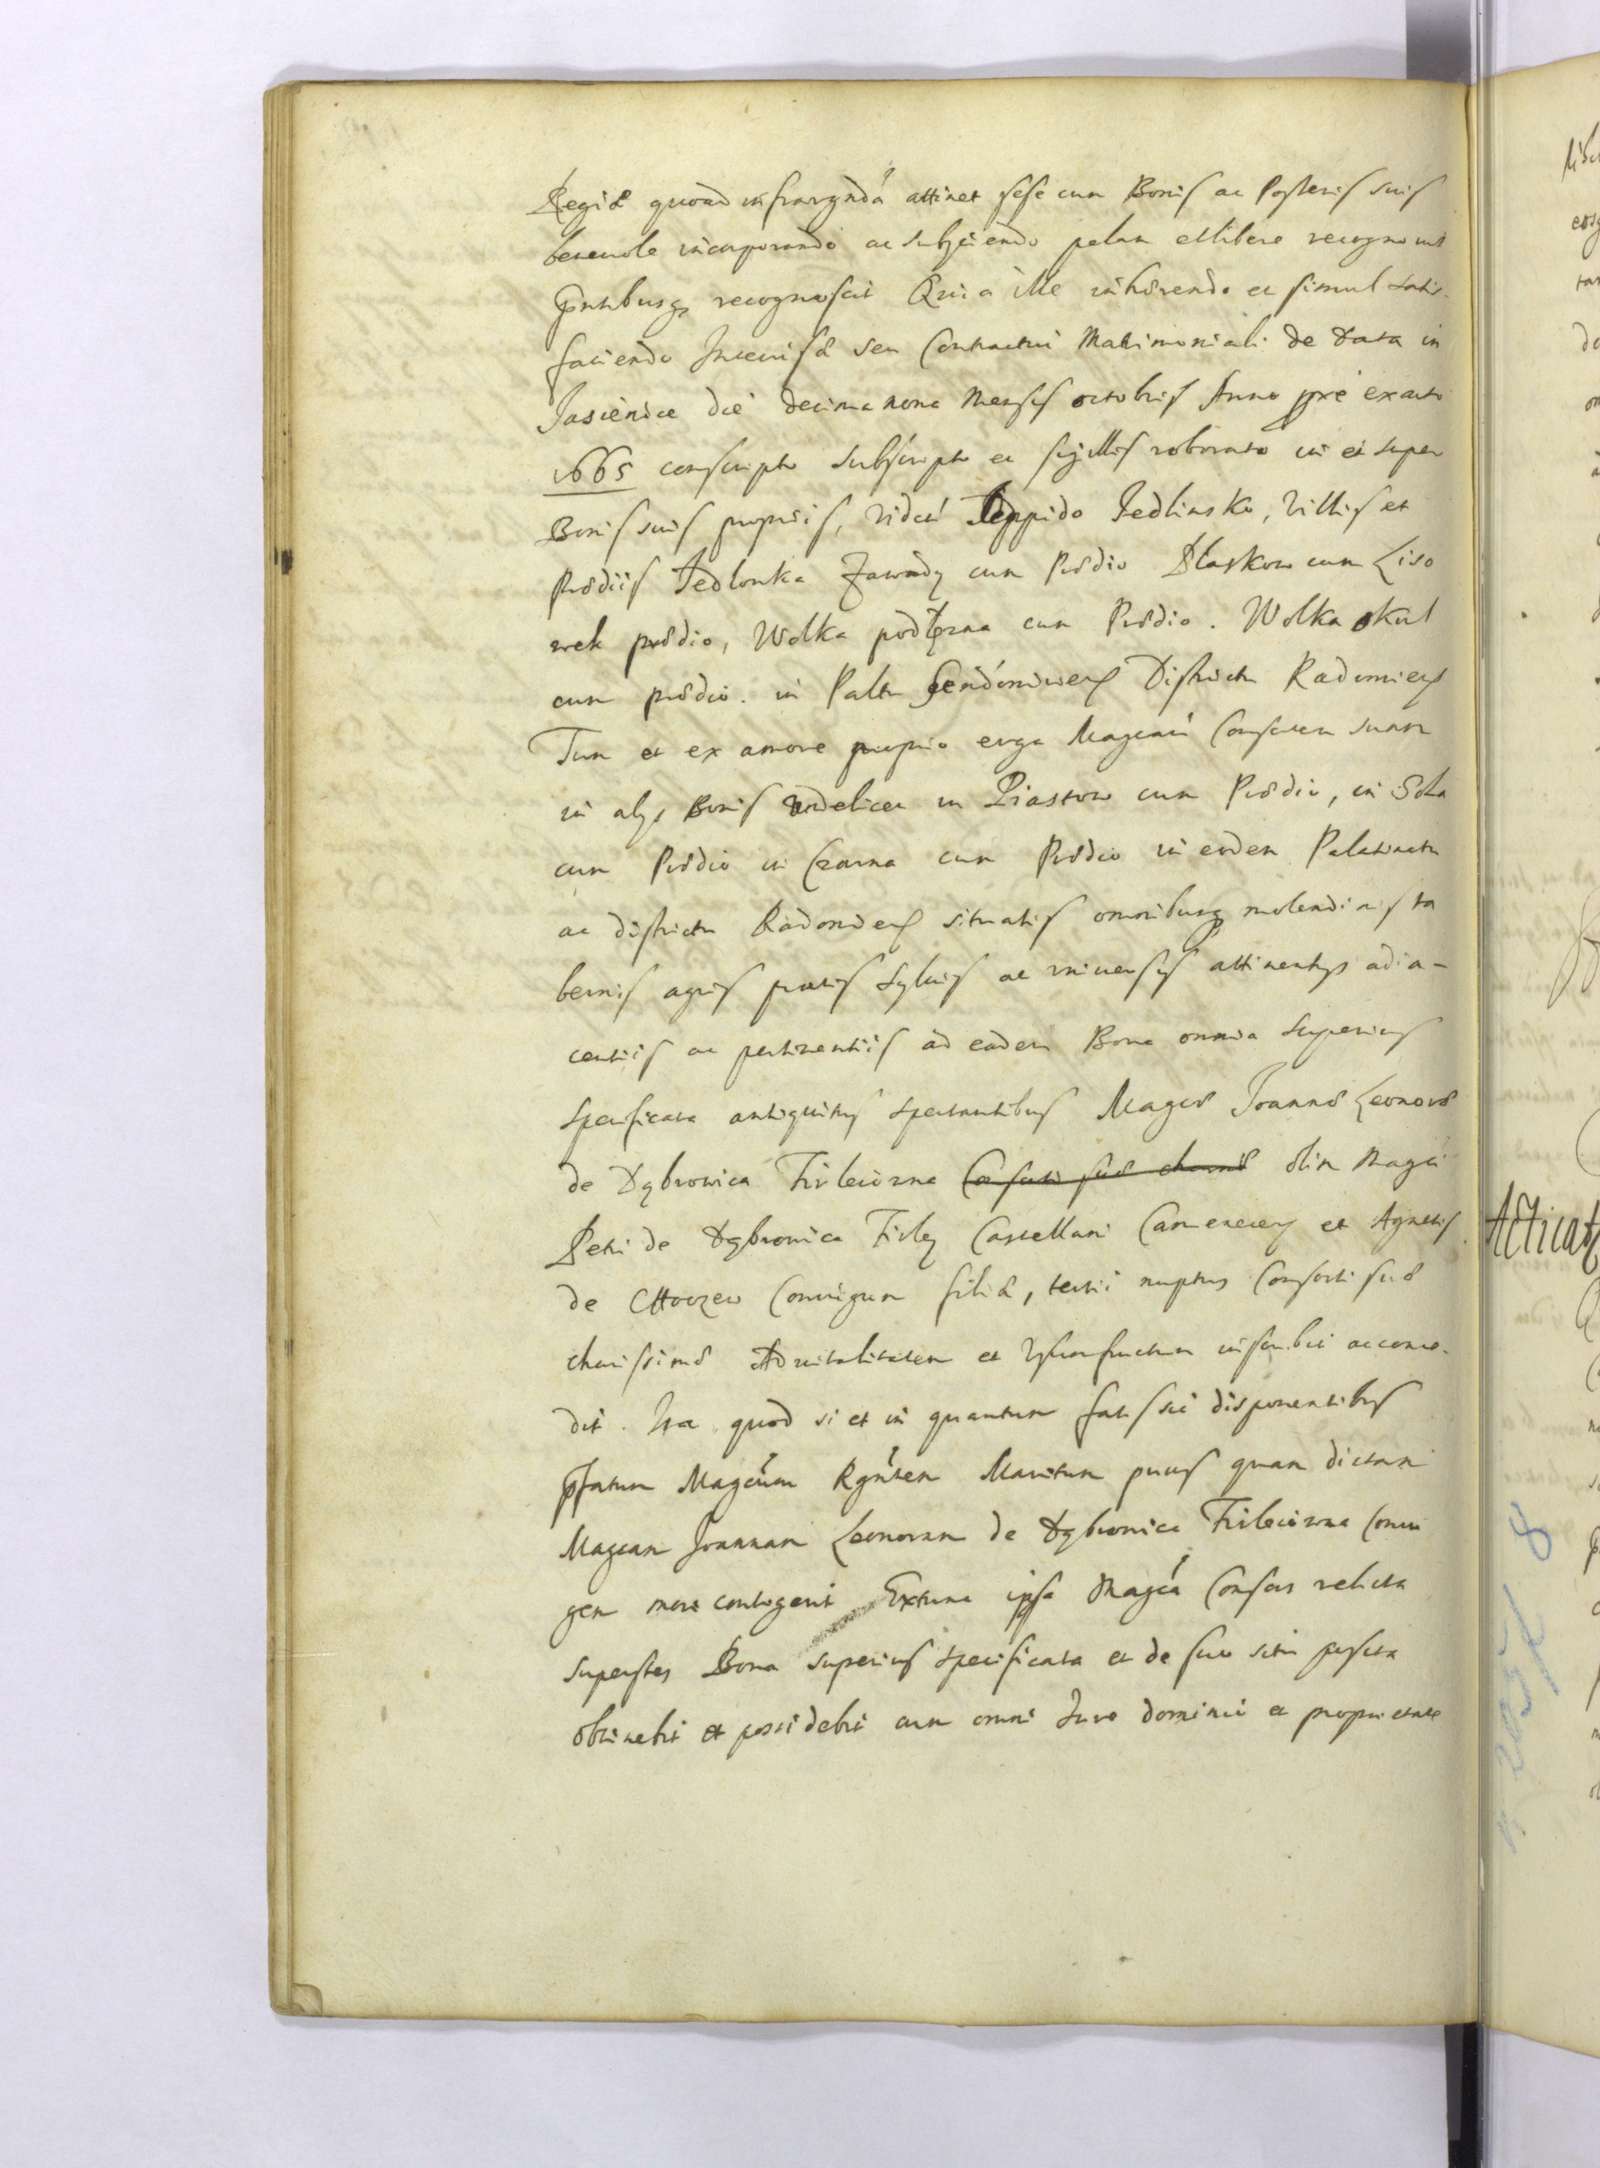 Regiæ quoad infrargnda attinet sese cum Bonis ac Posteris suis
beneuole incorporando ac subyciendo palam et libere recognouit
Pntibusq recognoscit Quia ille inhærendo et simul satis-
faciendo Intercisæ seu Contractui Matrimoniali de Data in
Jasienice die decima nona Mensis octobris Anno præ exacto
1665 conscripto subscripto et sigillis roborato in et super
Bonis suis proprijs, videt Oppido Jedlinsko, Villis et
Prædiis Jedlonka Zawady cum Prædio Płaskow cum Liso
wek prædio, Wolka podłezna cum Prædio. Wolka
cum prædio. in Paltu Sendomirien Districtu Radomien
Tum et ex amore proprio erga Magcam Consortem suam
in alys Bonis videlicet in Piastow cum Prædio, in
cum Prædio in Czarna cum Prædio in eodem Palatinatu
ac districtu Radomien situatis omnibusq molendinis ta
bernis agris pratis syluis ac vniuersis attinentys adia-
centiis ac pertinentiis ad eadem Bona omnia superius
specificata antiquitus spectantibus Magcæ Joannæ Leonoræ
de Dąbrowica Firleiowna Consorti suæ charissæ olim Magci
Petri de Dąbrowica Firley Castellani Camenecen et Agnetis
de Conuigum filiæ, tertii nuptus Consorti suæ
charissimæ Aduitalitatem et Vsumfructum inscribit accomo-
dit. Ita quod si et in quantum fatis sic disponentibus
pfatum Magcum Rgntem Maritum prius quam dictam
Magcam Joannam Leonoram de Dąbrowica Firleiowna Coniu
gem mori contigerit Extunc ipsa Magca Consors relicta
superstes Bona superius specificata et de suo situ
obtinebit et possidebit cum omni Iure dominii et proprietate
Acticat